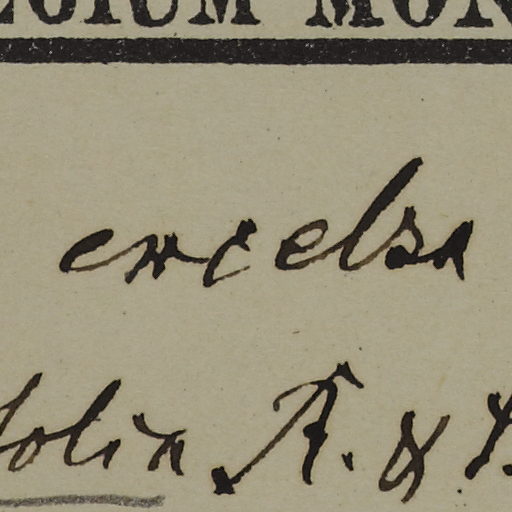 EGIUM MON
excelsa
folia R. & S.